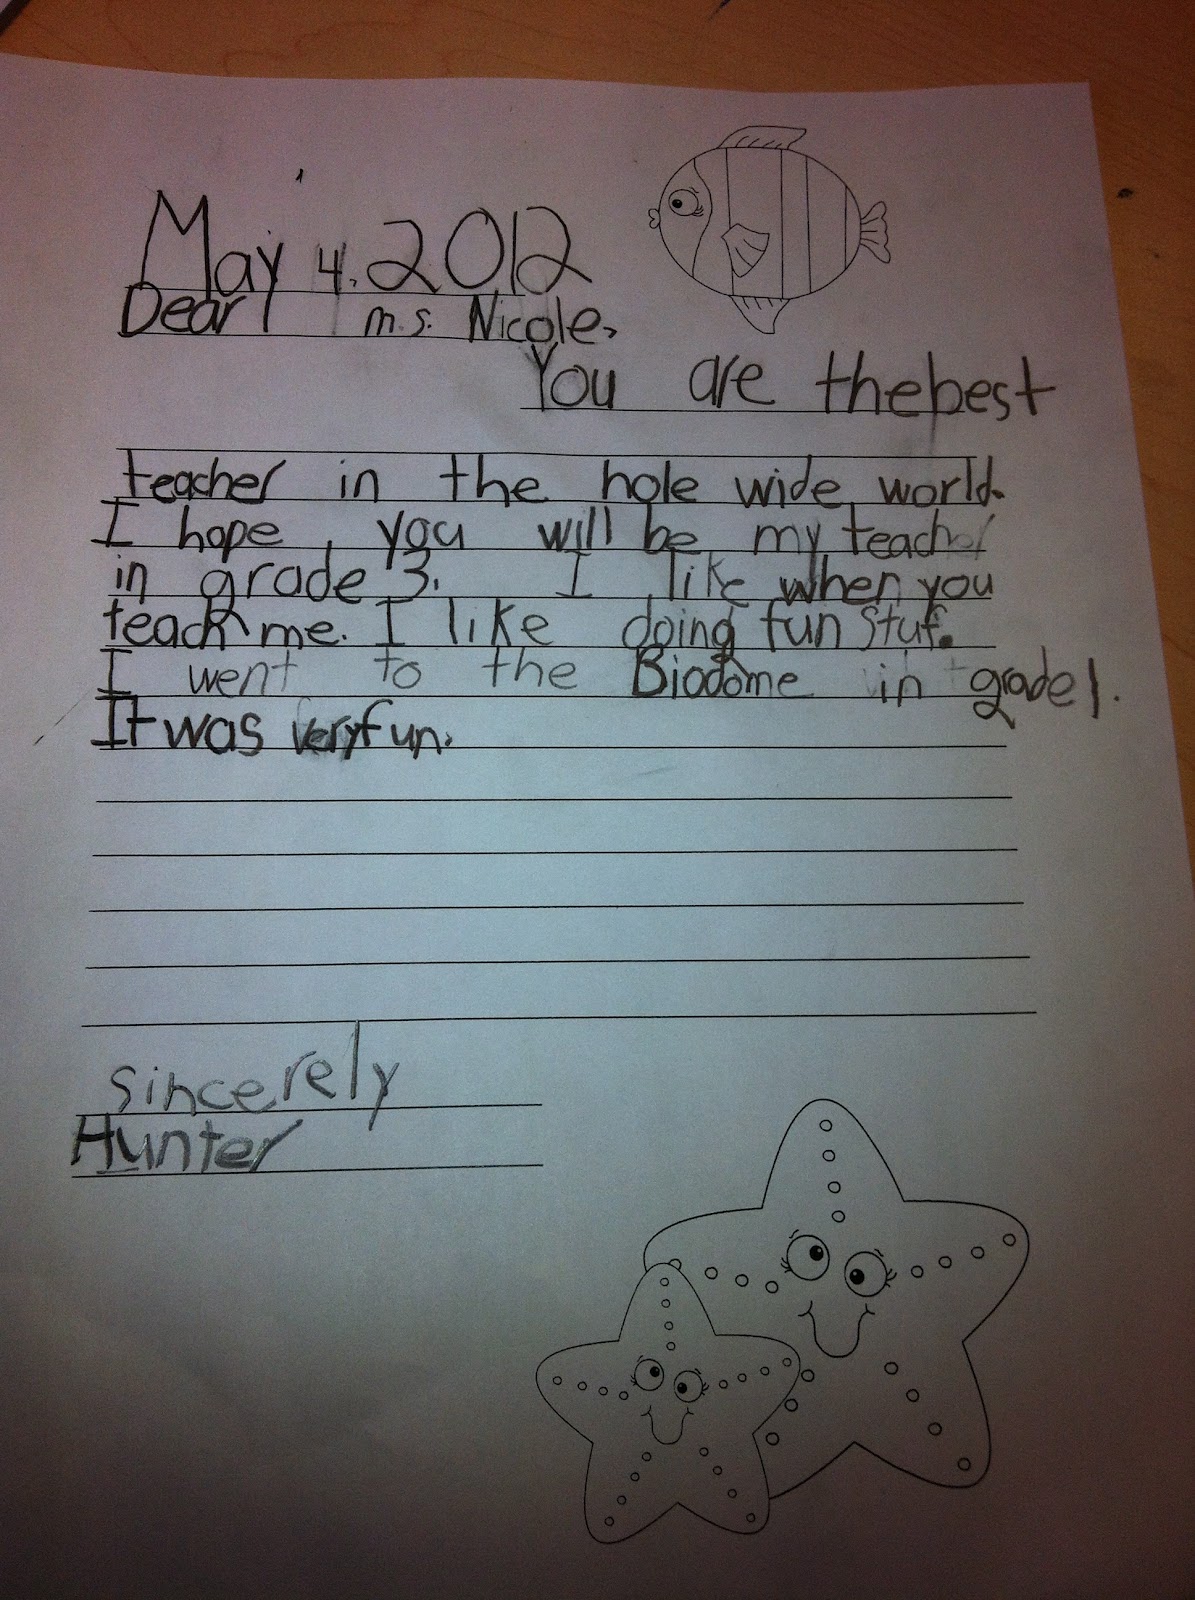 May 4, 2012
Dear m.s. Nicole,
You are thebest
teacher in the hole wide world.
I hope, you will be my teacher
in grade 3. I like when you
teach me. I like doing fun stuf.
I went to the Biodome in grade 1.
It was very fun.
sincerely
Hunter